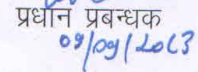 प्रधान प्रबन्धक
09/09/2013